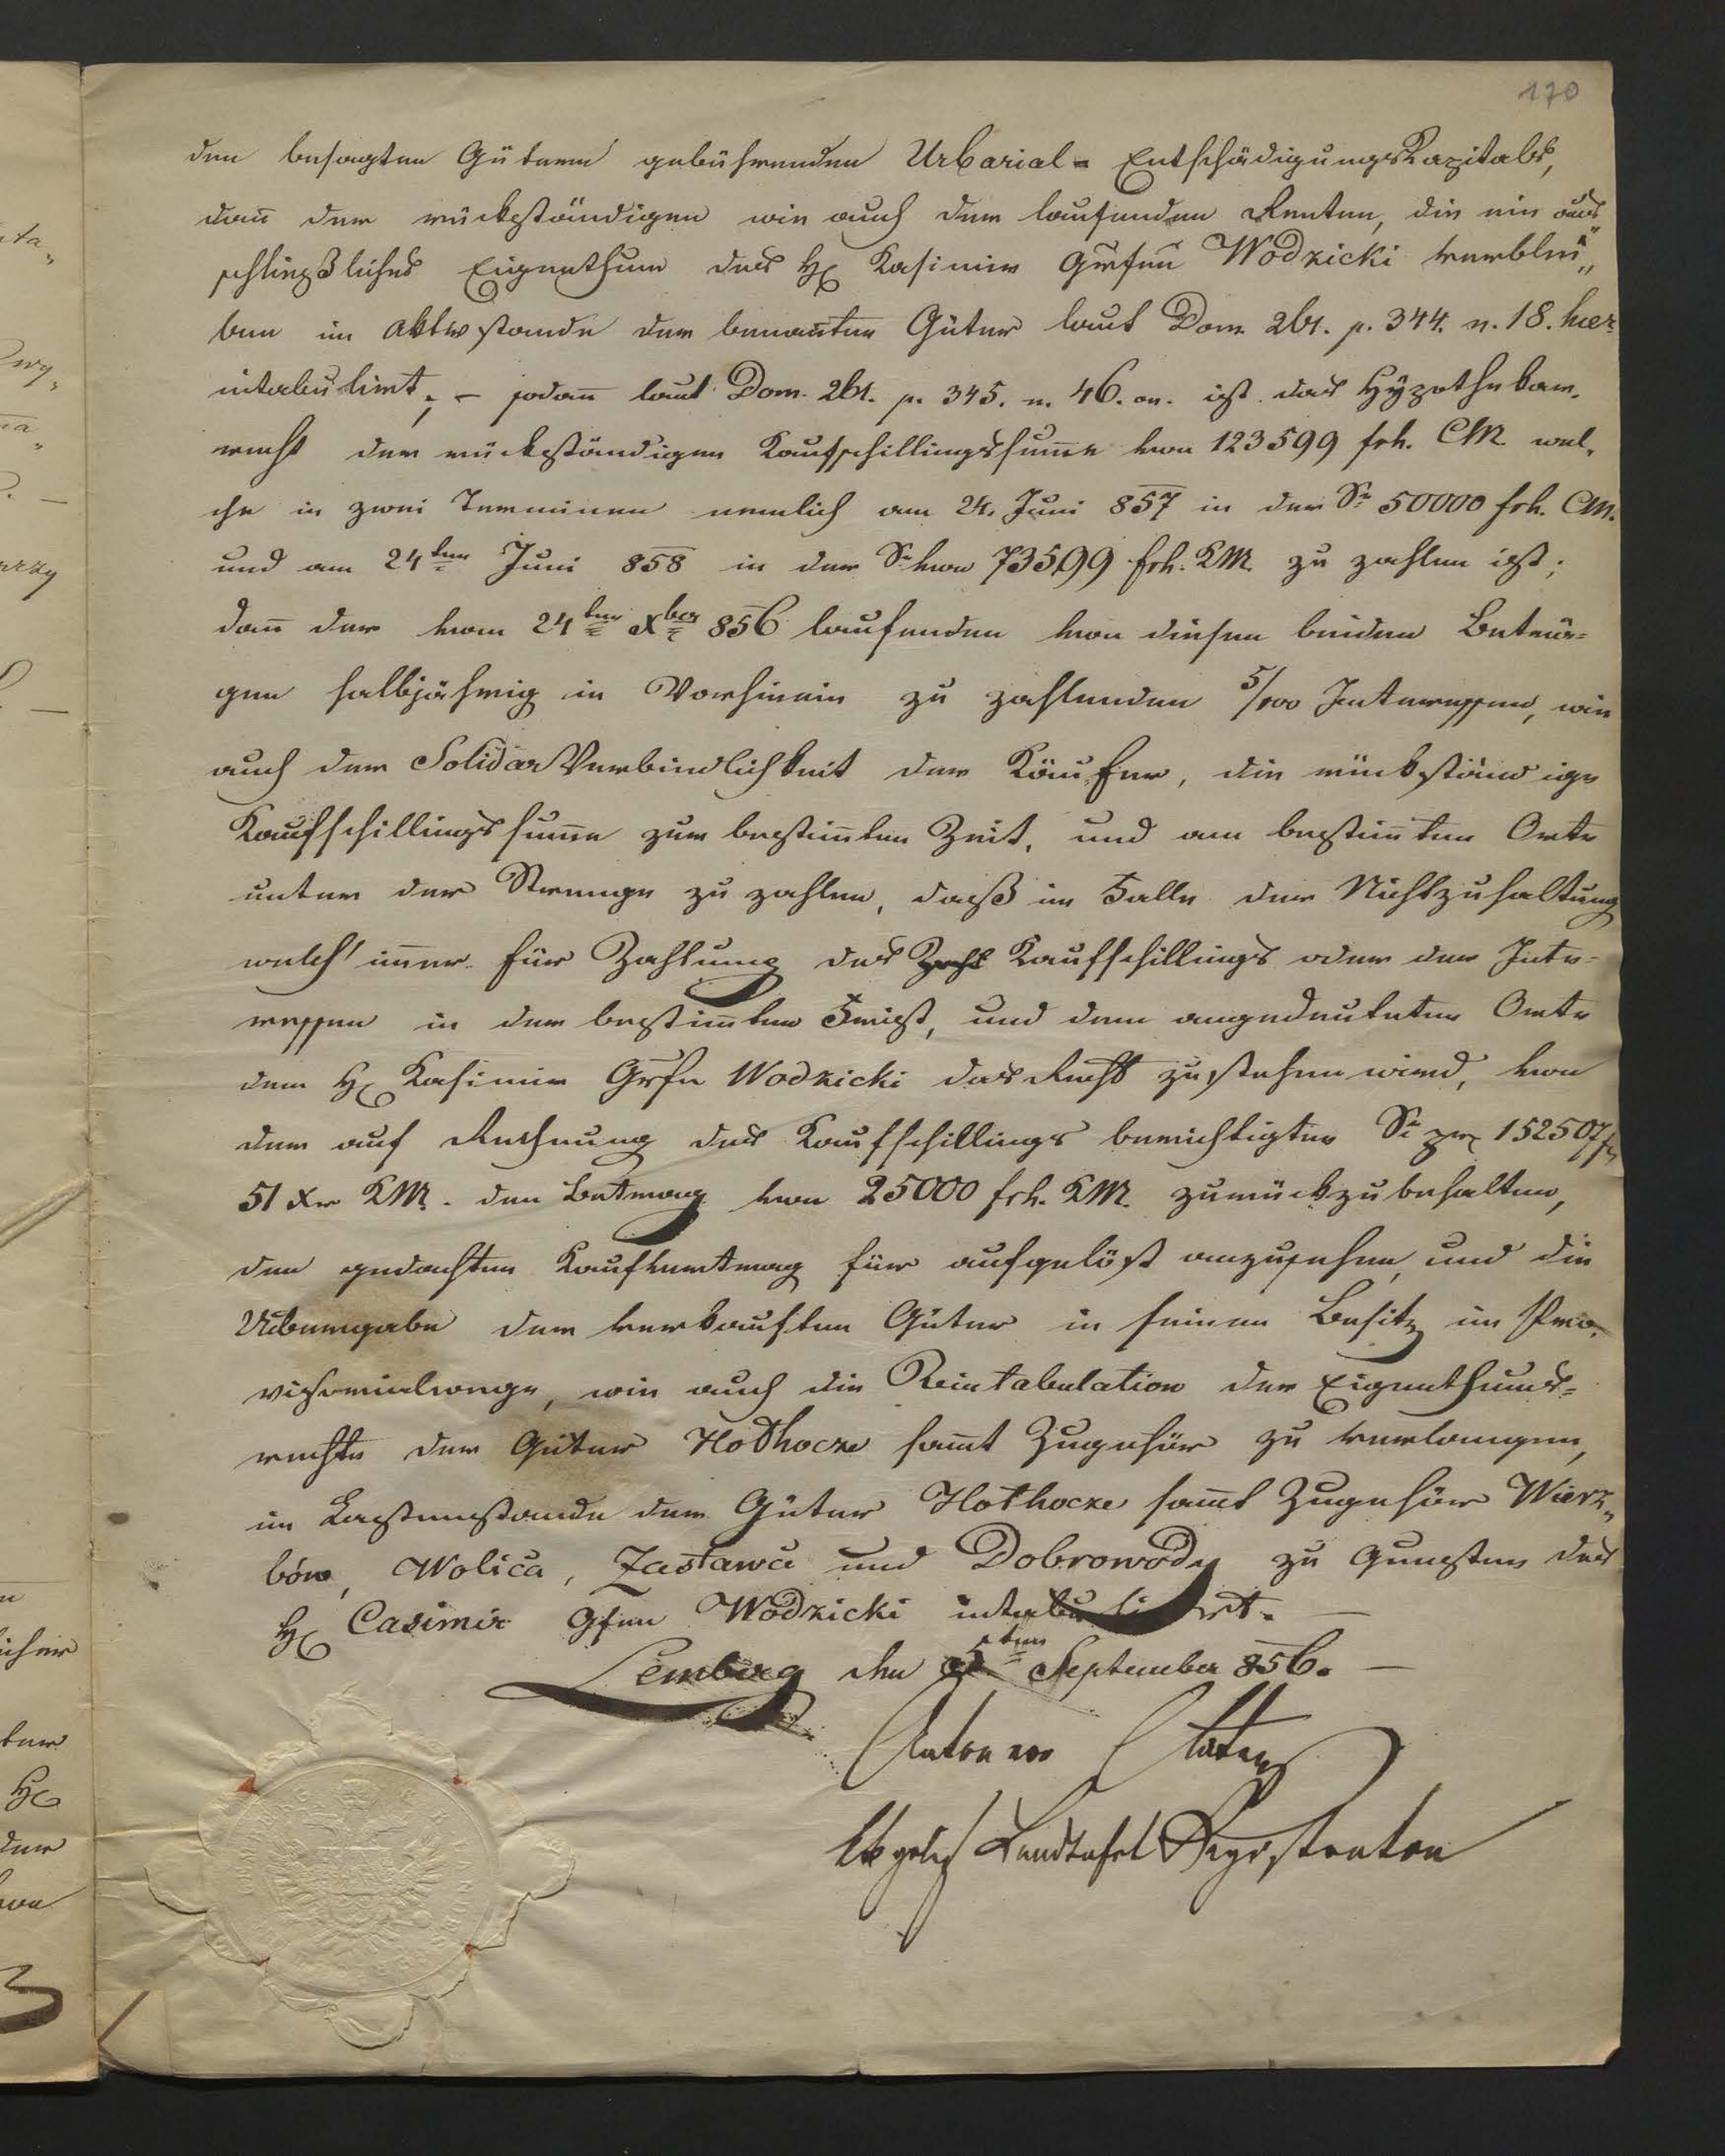 170
den besagten Gütern gebührenden Urbarial-Entschädigungs Kapitals,
dan̄ der rückständigen wie auch der laufenden Renten, die ein aus„
schließliches Eigenthum des H Kasimir Grafen Wodzicki verblei„
ben im Aktivstande der benan̄ten Güter laut Dom. 261. p. 344. n. 18. hier
intabulirt; – sodan̄ laut Dom. 261. p. 345. n. 46. on. ist das Hypothekar„
recht der rückständigen Kaufschillingssum̄e von 123599 frh. CM. wel„
che in zwei Terminen nemlich am 24. Juni 857 in der Se 50000 frh. CM.
und am 24ten Juni 858 in der Se von 73599 frh. KM. zu zahlen ist;
dan̄ der vom 24ten Xber 856 laufenden von diesen beiden Beträ=
gen halbjährig in Vorhinein zu zahlenden 5/100 Interessen, wie
auch der Solidar Verbindlichkeit der Käufer, die rückständige
Kaufschillingssum̄e zur bestim̄ten Zeit, und am bestim̄ten Orte
unter der Strenge zu zahlen, daß im Falle der Nichtzuhaltung
welch' im̄er für Zahlung des Kaufschillings oder der Inte=
ressen in der bestim̄ten Frist, und dem angedeuteten Orte
dem H Kasimir Grfn Wodzicki das Recht zustehen wird, von
der auf Rechnung des Kaufschillings berichtigten Se pr 152507 f
51 Xr KM. den Betrag von 25000 frh. KM. zurückzubehalten,
den gedachten Kaufvertrag für aufgelöst anzusehen, und die
Uibergabe der verkauften Güter in seinen Besitz im Pro„
visorialwege, wie auch die Reintabulation der Eigenthums=
rechte der Güter Hołhocze sam̄t Zugehör zu verlangen,
im Lastenstande der Güter Hołhocze sam̄t Zugehör Wierz„
bów, Wolica, Zastawce und Dobrowody zu Gunsten des
H Casimir Gfen Wodzicki intabulirt. –
Lemberg den September 856. –
Anton von
Landtafel Registrator